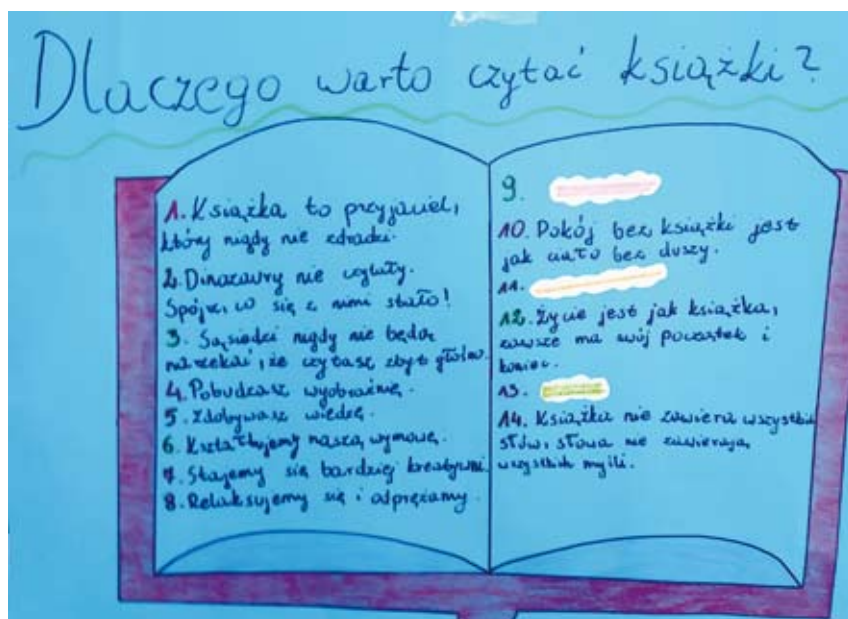 Dlaczego warto czytać książki?
1. Książka to przyjaciel,
który nigdy nie zdradzi.
2. Dinozaury nie czytały.
Spójrz, co się z nimi stało!
3. Sąsiedzi nigdy nie będą
narzekać, że czytasz zbyt głośno.
4. Pobudzasz wyobraźnię.
5. Zdobywasz wiedzę.
6. Kształtujemy naszą wymowę.
7. Stajemy się bardziej kreatywni.
8. Relaksujemy się i odprężamy.
9.
10. Pokój bez książki jest
jak ciało bez duszy.
11.
12. Życie jest jak książka,
zawsze ma swój początek i
koniec.
13.
14. Książka nie zawiera wszystkich
słów, słowa nie zawierają
wszystkich myśli.